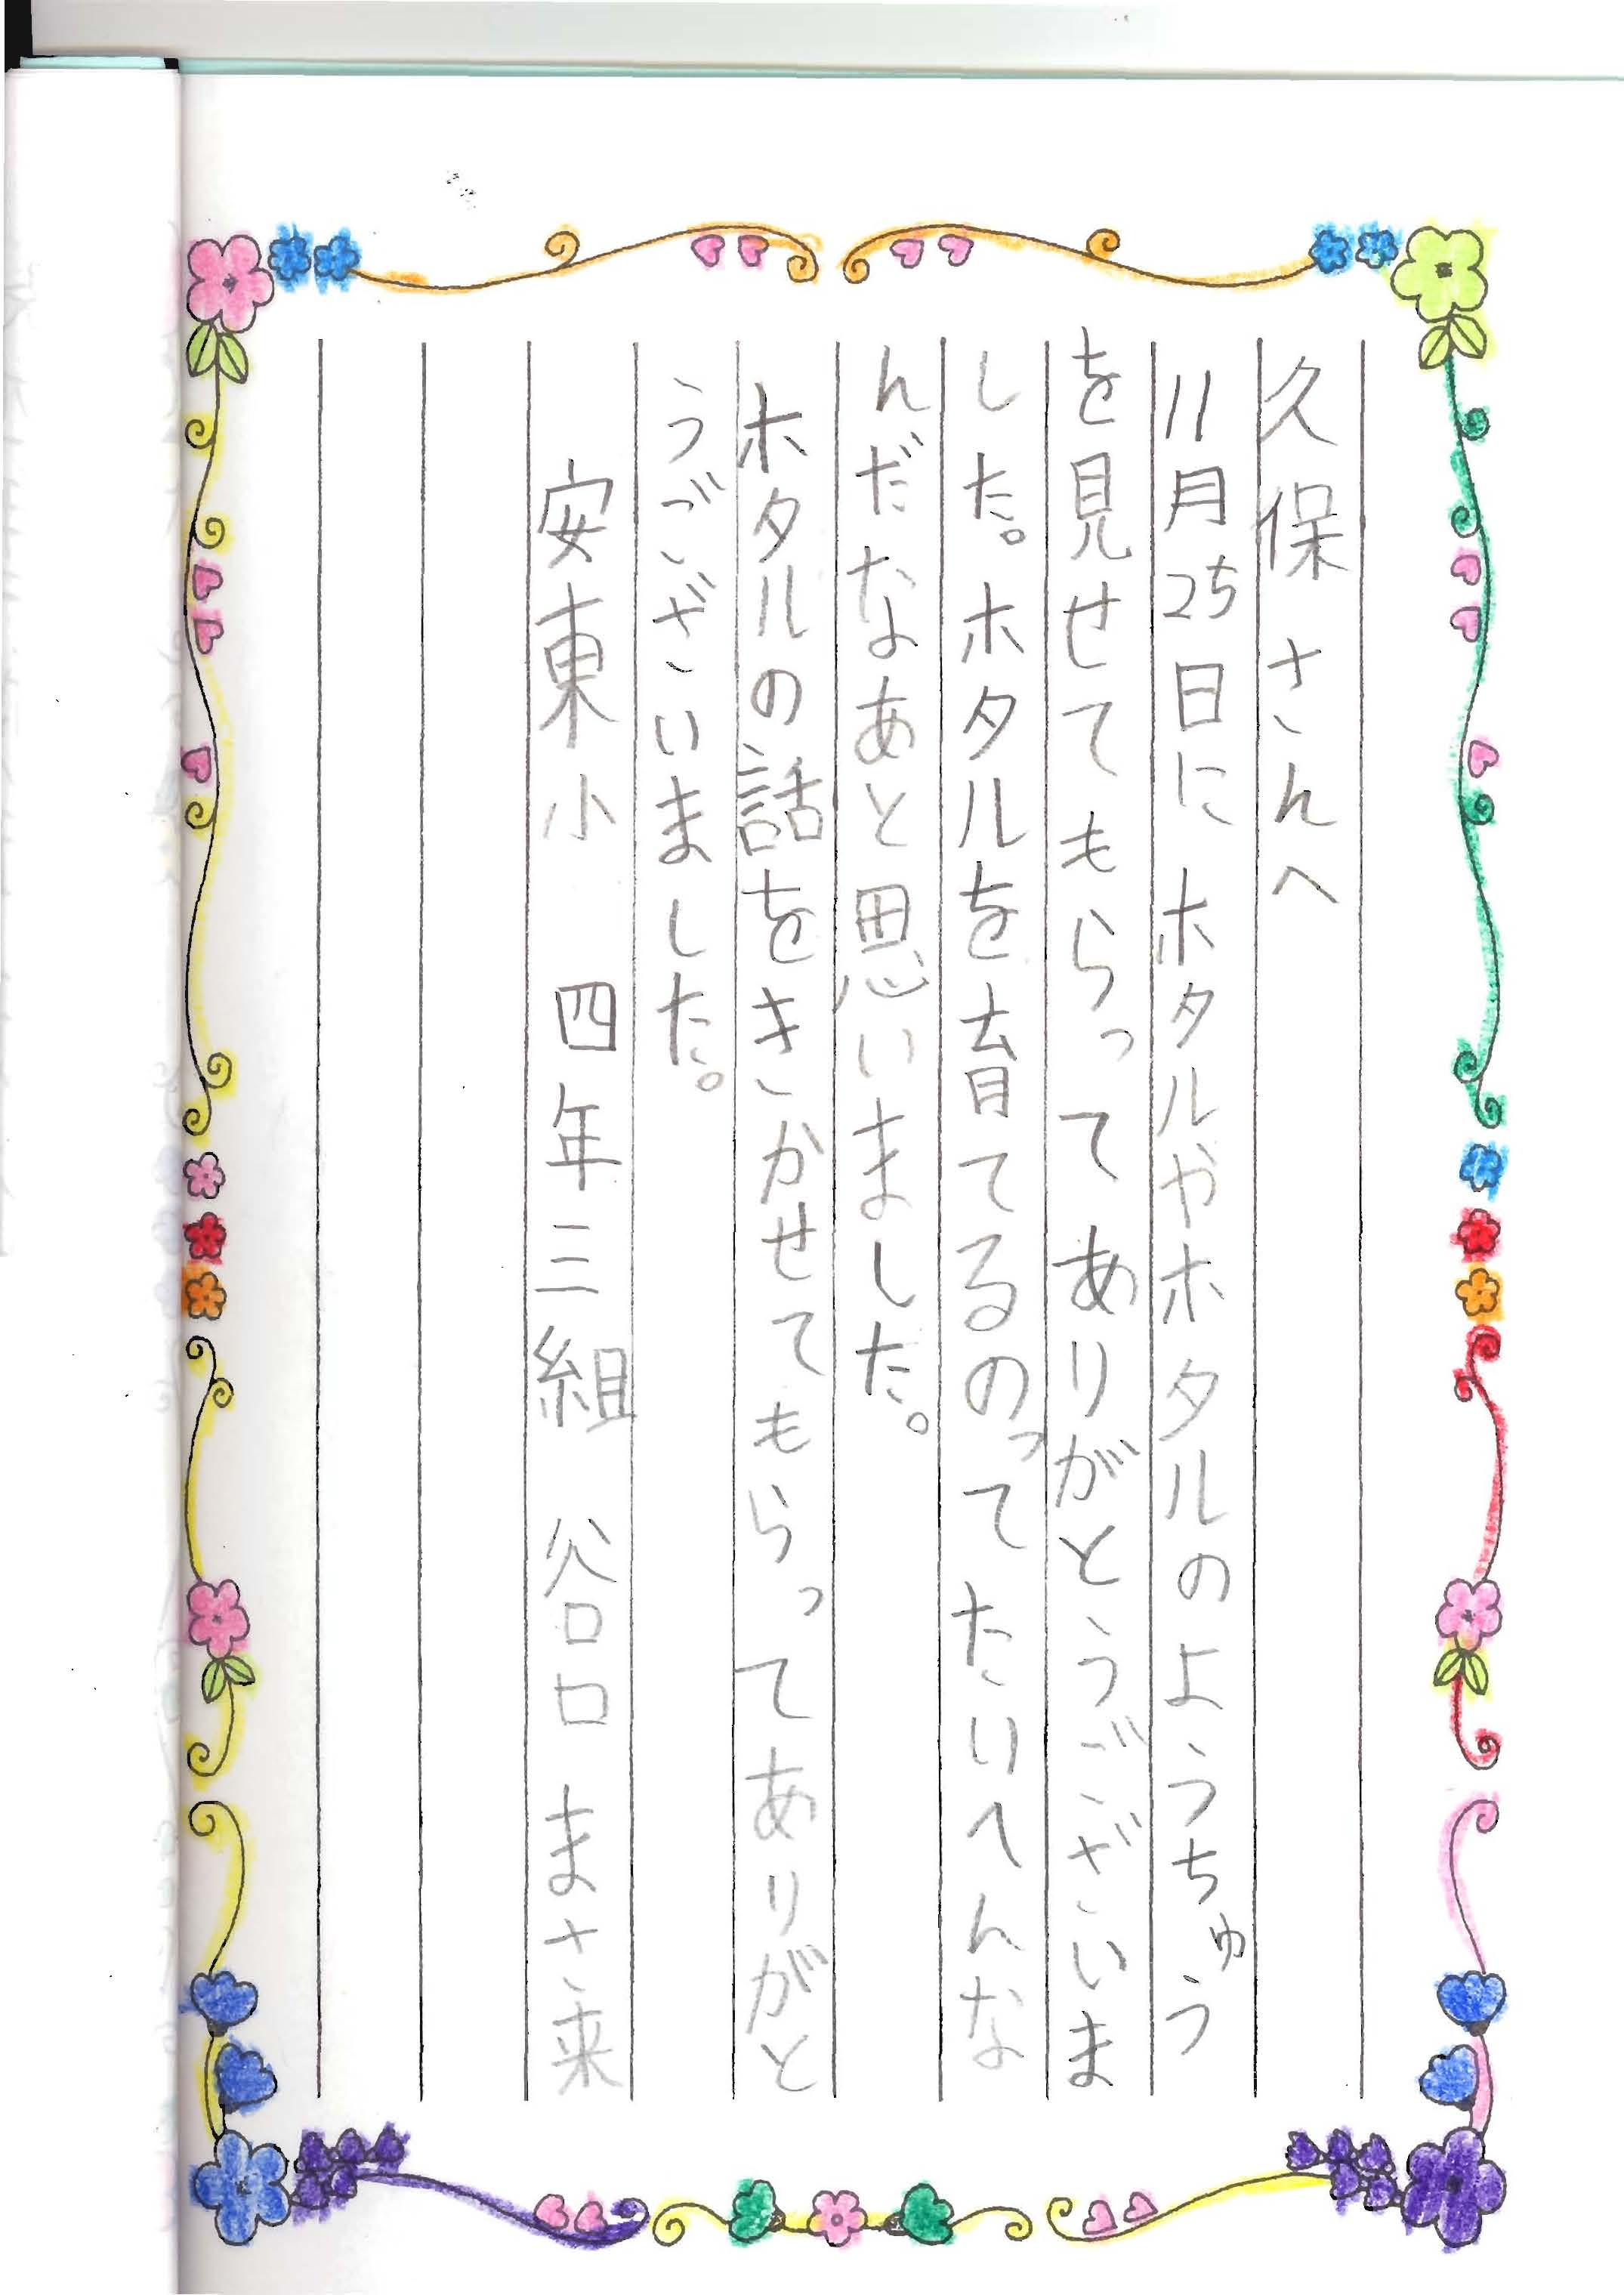 久保さんへ
11月25日にホタルやホタルのようちゅう
を見せてもらってありがとうございま
した。ホタルを育てるのってたいへんな
んだなあと思いました。
ホタルの話をきかせてもらってありがと
うございました。
安東小 四年三組 谷口まさ来